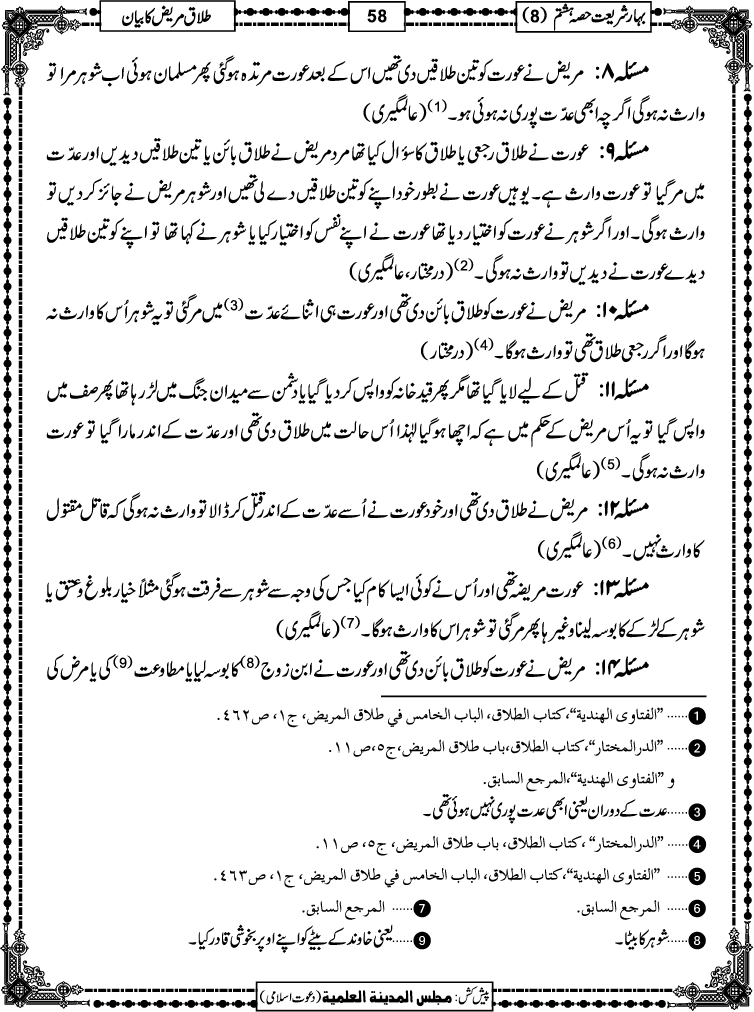 بہار شریعت حصہ ہشتم (8)
58
طلاق مریض کا بیان
مسئلہ ۸: مریض نے عورت کو تین طلاقیں دی تھیں اس کے بعد عورت مرتدہ ہوگئی پھر مسلمان ہوئی اب شوہر مرا تو
وارث نہ ہوگی اگرچہ ابھی عدّت پوری نہ ہوئی ہو۔(1) (عالمگیری)
مسئلہ ۹: عورت نے طلاق رجعی یا طلاق کا سؤال کیا تھا مرد مریض نے طلاق بائن یا تین طلاقیں دیدیں اور عدّت
میں مر گیا تو عورت وارث ہے۔ یوہیں عورت نے بطور خود اپنے کو تین طلاقیں دے لی تھیں اور شوہر مریض نے جائز کر دیں تو
وارث ہوگی۔ اور اگر شوہر نے عورت کو اختیار دیا تھا عورت نے اپنے نفس کو اختیار کیا یا شوہر نے کہا تھا تو اپنے کو تین طلاقیں
دیدے عورت نے دیدیں تو وارث نہ ہوگی۔(2) (درمختار، عالمگیری)
مسئلہ ۱۰: مریض نے عورت کو طلاق بائن دی تھی اور عورت ہی اثنائے عدّت(3) میں مر گئی تو یہ شوہر اُس کا وارث نہ
ہوگا اور اگر رجعی طلاق تھی تو وارث ہوگا۔(4) (درمختار)
مسئلہ ۱۱: قتل کے لیے لایا گیا تھا مگر پھر قید خانہ کو واپس کر دیا گیا یا دشمن سے میدان جنگ میں لڑ رہا تھا پھر صف میں
واپس گیا تو یہ اُس مریض کے حکم میں ہے کہ اچھا ہوگیا لہٰذا اُس حالت میں طلاق دی تھی اور عدّت کے اندر مارا گیا تو عورت
وارث نہ ہوگی۔(5) (عالمگیری)
مسئلہ ۱۲: مریض نے طلاق دی تھی اور خود عورت نے اُسے عدّت کے اندر قتل کر ڈالا تو وارث نہ ہوگی کہ قاتل مقتول
کا وارث نہیں۔(6) (عالمگیری)
مسئلہ ۱۳: عورت مریضہ تھی اور اُس نے کوئی ایسا کام کیا جس کی وجہ سے شوہر سے فرقت ہوگئی مثلاً خیار بلوغ و عتق یا
شوہر کے لڑکے کا بوسہ لینا وغیرہا پھر مر گئی تو شوہر اس کا وارث ہوگا۔(7) (عالمگیری)
مسئلہ ۱۴: مریض نے عورت کو طلاق بائن دی تھی اور عورت نے ابن زوج(8) کا بوسہ لیا یا مطاوعت(9) کی یا مرض کی
1 ...... "الفتاوى الهندية"، كتاب الطلاق، الباب الخامس في طلاق المريض، ج١، ص٤٦٢.
2 ...... "الدرالمختار"، كتاب الطلاق، باب طلاق المريض، ج٥، ص١١.
و "الفتاوى الهندية"، المرجع السابق.
3 ...... عدت کے دوران یعنی ابھی عدت پوری نہیں ہوئی تھی۔
4 ...... "الدرالمختار"، كتاب الطلاق، باب طلاق المريض، ج٥، ص١١.
5 ...... "الفتاوى الهندية"، كتاب الطلاق، الباب الخامس في طلاق المريض، ج١، ص٤٦٣.
6 ...... المرجع السابق. 7 ...... المرجع السابق.
8 ...... شوہر کا بیٹا۔ 9 ...... یعنی خاوند کے بیٹے کو اپنے اوپر بخوشی قادر کیا۔
پیش کش: مجلس المدینۃ العلمیۃ (دعوت اسلامی)